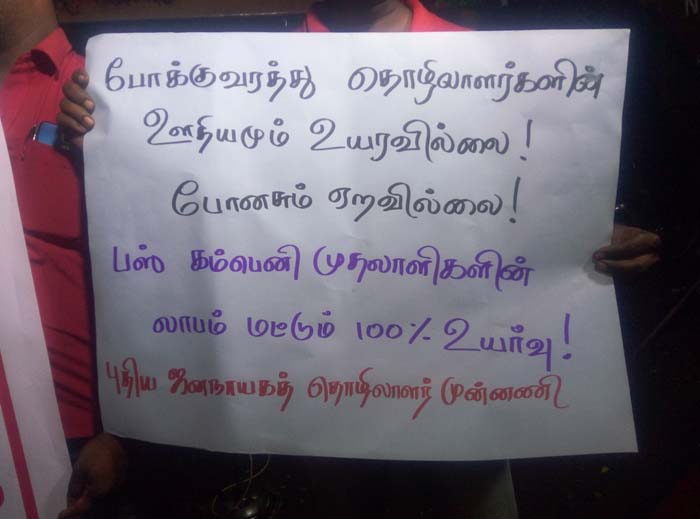 போக்குவரத்து தொழிலாளர்களின்
ஊதியமும் உயரவில்லை!
போனசும் ஏறவில்லை!
பஸ் கம்பெனி முதலாளிகளின்
லாபம் மட்டும் 100% உயர்வு!
புதிய ஜனநாயகத் தொழிலாளர் முன்னணி